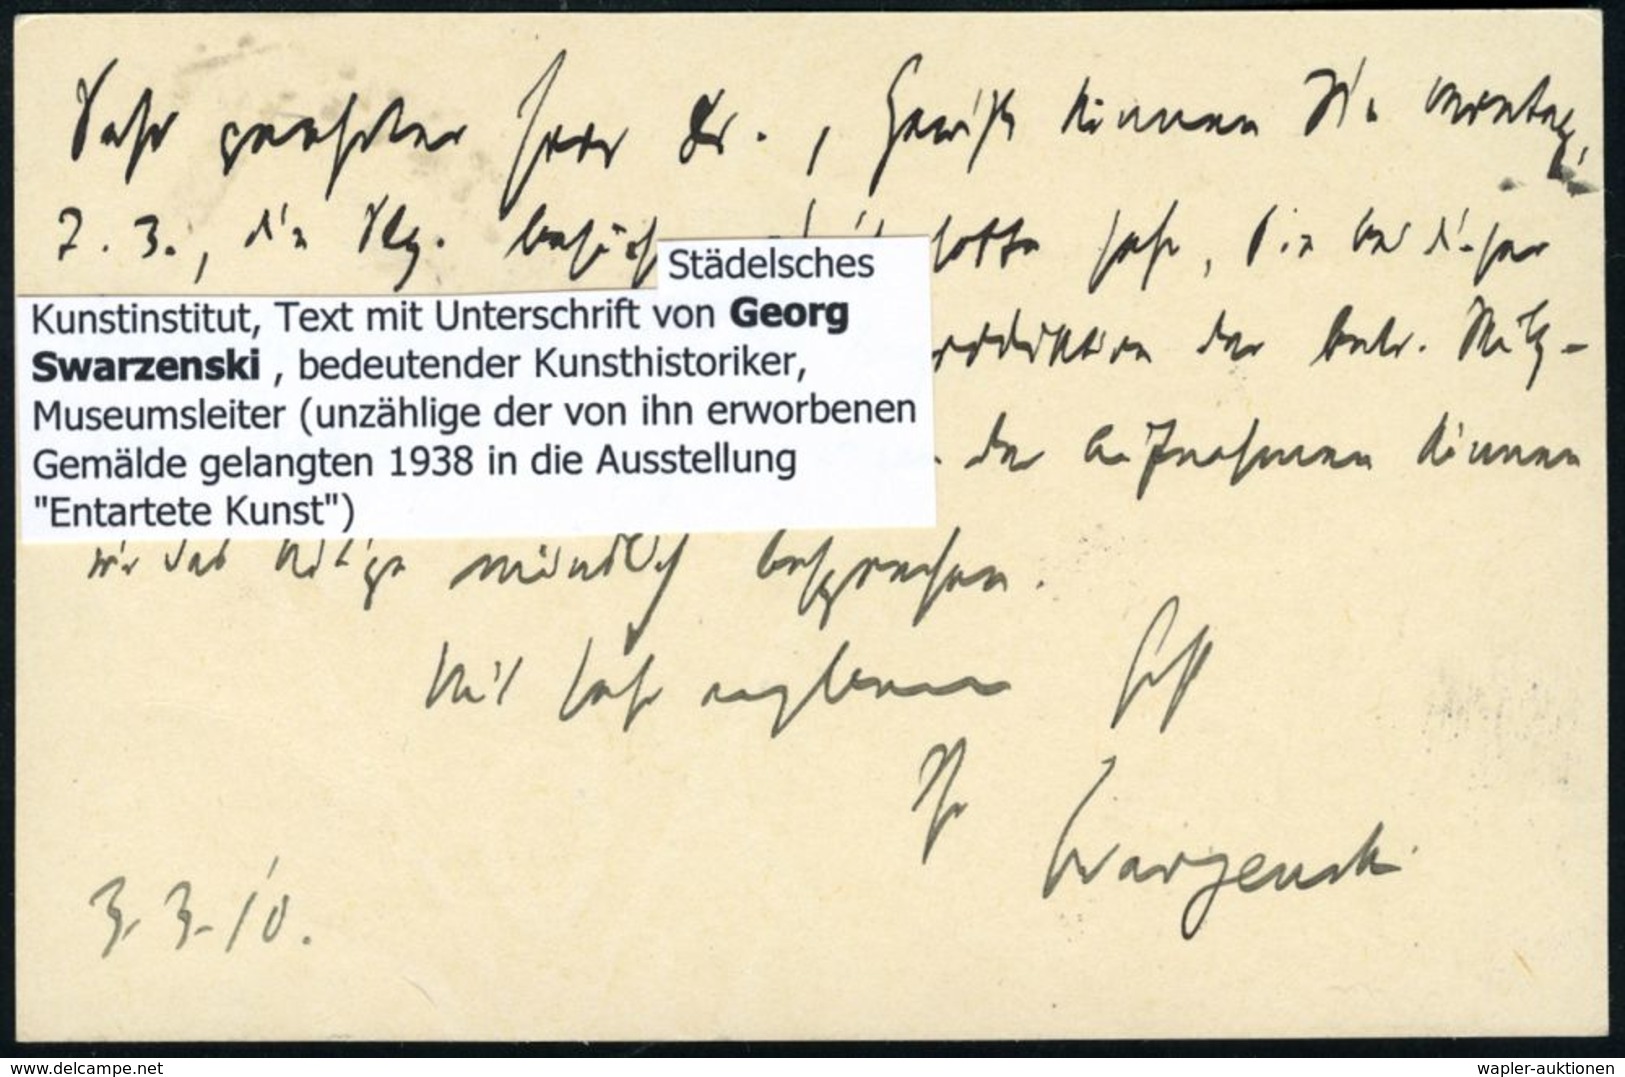 Sehr geehrter Herr Dr., Gewiß können Sie Montag,
7. 3., die Slg. besich hoffe sehr, Sie bei dieser
Städelsches
Kunstinstitut, Text mit Unterschrift von Georg
Swarzenski , bedeutender Kunsthistoriker,
Museumsleiter (unzählige der von ihn erworbenen
Gemälde gelangten 1938 in die Ausstellung
"Entartete Kunst")
der betr.
der Aufnahmen können
wir das Nötige mündlich besprechen.
Mit sehr ergebenem
Ihr
Swarzenski
3. 3. 10.
delcampe.net
wapler-auktionen